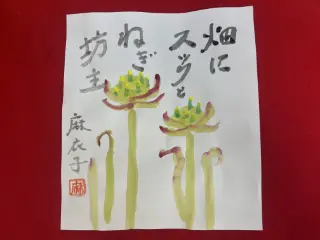 畑に
スックと
ねぎ
坊主
麻衣子
麻